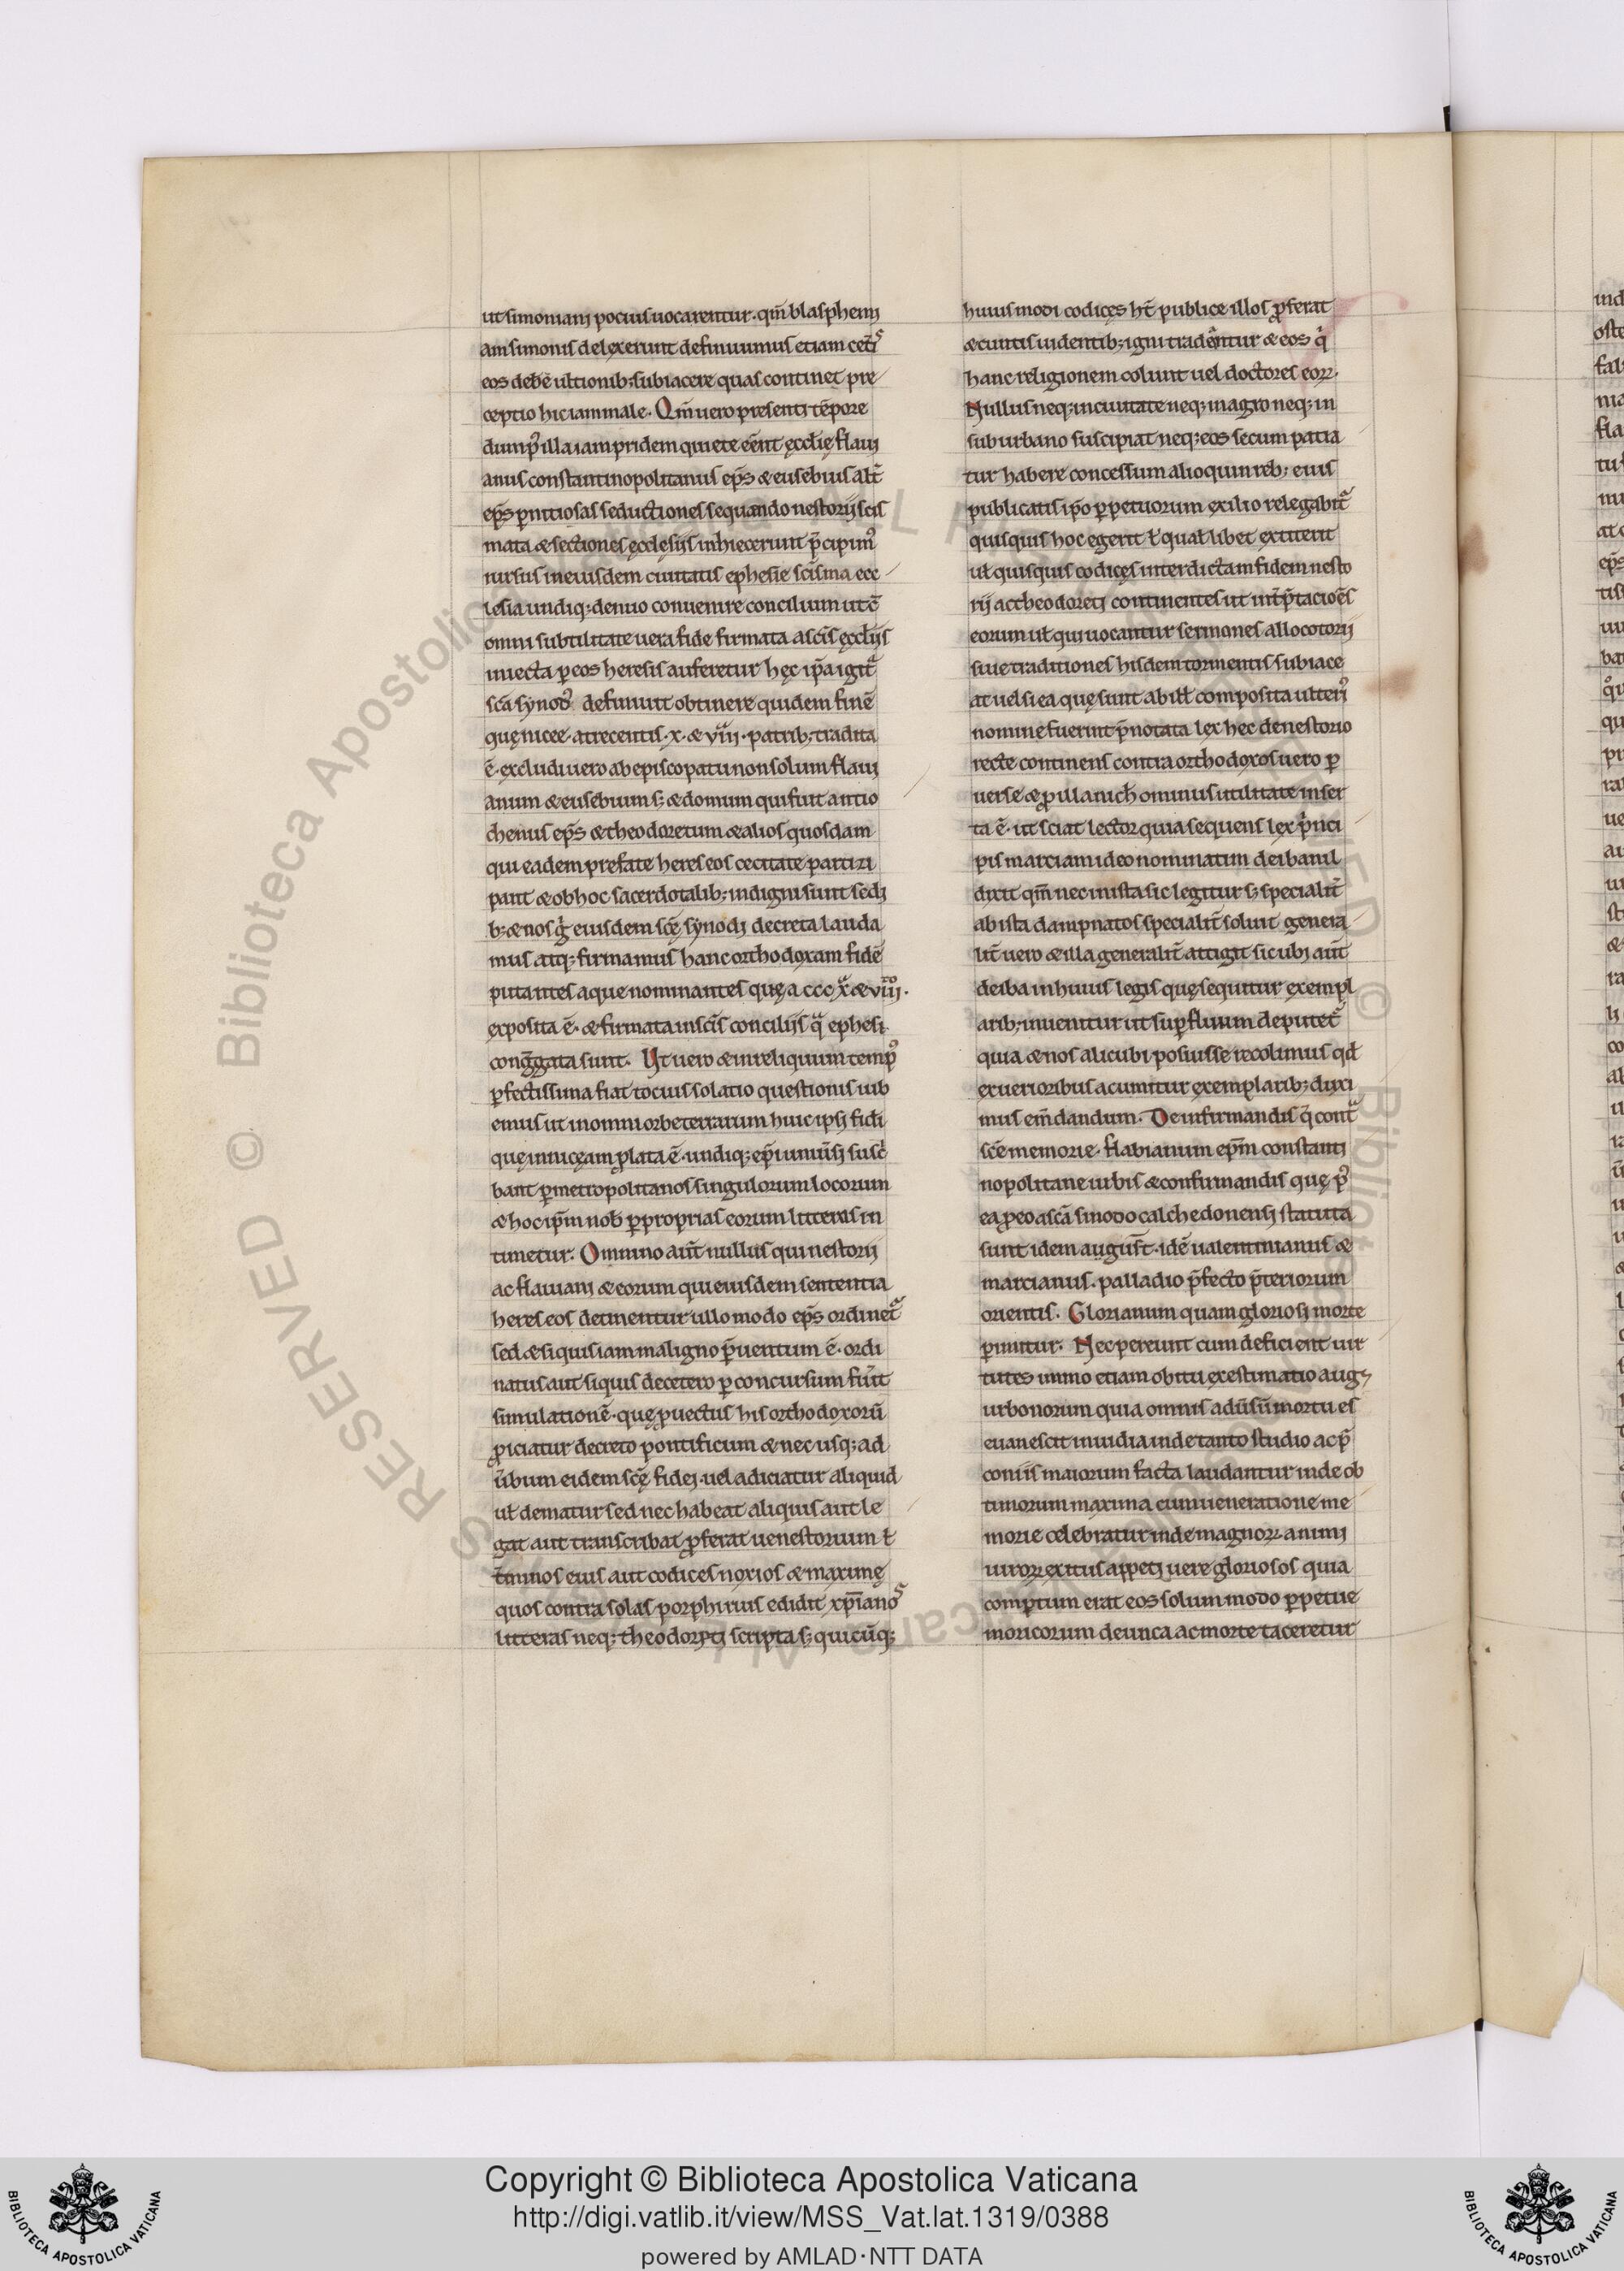 ut simoniani pocius uocarentur. qm̄ blasphemi
am simonis delexerunt definiuimus etiam cet̄is
eos debē ultionib; subiacere quas continet pre
ceptio hic iam male. Qm̄ uero presenti tēpore
dum p̱ illa iam pridem quiete eēnt ęccl̄ię flaui
anus constantinopolitanus ep̄s & eusebius alt̄
ep̄s p̱nitiosas seductiones sequando nestorij scis
mata & sectiones ęcclesijs inhiecerunt p̄cipim᷒
rursus in eiusdem ciuitatis ephesie scisma ecc
lesia undiq; denuo conuenire concilium ut cū
omni subtilitate uera fide firmata a scīs ęccl̄ijs
inuecta p̱ eos heresis auferetur hęc ip̄a igit᷑
scā synod᷒ definiuit obtinere quidem finē
quę nicee. a trecentis. x. & viii. patrib; tradita
ē. excludi uero ab episcopatu non solum flaui
anum & eusebium s; & domum qui fuit antio
chenus ep̄s & theodoretum & alios quosdam
qui eadem prefate hereseos cecitate partizi
pant & ob hoc sacerdotalib; indigni sunt sedi
b; & nos g̊ eiusdem scę̄ synodi decreta lauda
mus atq; firmamus hanc orthodoxam fidē
putantes aque nominantes quę a ccc x & viii.
exposita ē. & firmata in scīs concilijs q̄ ephesi
conḡgata sunt. Ut uero & in reliquum temp᷒
p̱fectissima fiat tocius solatio questionis iub
emus ut in omni orbe terrarum huic ipsi fidi
quę in nicęam ꝓlata ē. undiq; ep̄i uniūsi susc̄
bant p̱ metropolitanos singulorum locorum
& hoc ip̄m nob̄ p̱ proprias eorum litteras in
timetur. Omnino aut̄ nullus qui nestorii
ac flauiani & eorum qui eiusdem sententia
hereseos detinentur ullo modo ep̄s ordinet᷑
sed & si quis iam maligno p̄uentum ē. ordi
natus aut si quis decetero p̱ concursum fuīt
simulationē. quę ꝓuectus his orthodoxorū
ꝓiciatur decreto pontificum & nec usq; ad
ūbum eidem scę̄ fidei. uel adiciatur aliquid
ul̄ dematur sed nec habeat aliquis aut le
gat aut transcribat ꝓferat ue nestorium ł
t̄minos eius aut codices noxios & maximę
quos contra solas porphirius edidit xp̄ianos
litteras neq; theodoreti scripta s; quicūq;
huiusmodi codicęs hn̄t publice illos ꝓferat
& cunctis uidentib; igni tradentur & eos q̇
hanc religionem colunt uel doctores eoꝝ.
Nullus neq; in ciuitate neq; in agro neq; in
suburbano suscipiat neq; eos secum patia
tur habere concessum alioquin reb; eius
publicatis ip̄o p̱petuorum exilio relegabit᷑
quisquis hoc egerit ł qual̄ libet extiterit
ul̄ quisquis codicęs interdictam fidem nesto
rij ac theodoreti continentes ut int̄p̄tacioēs
eorum ul̄ qui uocantur sermones allocotorij
siue traditiones hisdem tormentis subiace
at uel si ea quę sunt ab ill̄ composita ulteri᷒
nomine fuerint p̄notata lex hec de nestorio
recte continens contra orthodoxos uero p̱
uerse & ꝓ illa nich̄ ominus utilitate inser
ta ē. ut sciat lector quia sequens lex p̄nci
pis marciani ideo nominatim de iba nil
dixit qm̄ nec in ista sic legitur s; specialit̄
ab ista dampnatos specialit̄ soluit genera
lit̄ uero & illa generalit̄ attigit sicubi aut̄
de iba in huius legis quę sequitur exempl
arib; inuenitur ut sup̱fluum deputet᷑
quia & nos alicubi posuisse recolimus qd̄
ex uerioribus acumitur exemplarib; duxi
mus em̄dandum. De infirmandis q̄ cont᷑
scē memorie. flabianum ep̄m constanti
nopolitane iurbis & confirmandis quę p᷒
ea ꝓ eo a scā sinodo calchedonensi statuta
sunt idem august̄. idē ualentinianus &
marcianus. palladio p̄fecto p̄teriorum
orientis. Glorianum quam gloriosi morte
p̱imitur. Nec pereunt cum deficient uir
tutes immo etiam obitu exestimatio aug;
ur bonorum quia omnis adūsū mortu es
euanescit inuidia inde tanto studio ac p̄
coniis maiorum facta laudantur inde ob
timorum maxima cum ueneratione me
morie celebratur inde magnoꝝ animi
uiroꝝ exitus appeti uere gloriosos quia
comptum erat eos solum modo p̱petue
moricorum de unca ac morte taceretur
Copyright © Biblioteca Apostolica Vaticana
http://digi.vatlib.it/view/MSS_Vat.lat.1319/0388
powered by AMLAD·NTT DATA